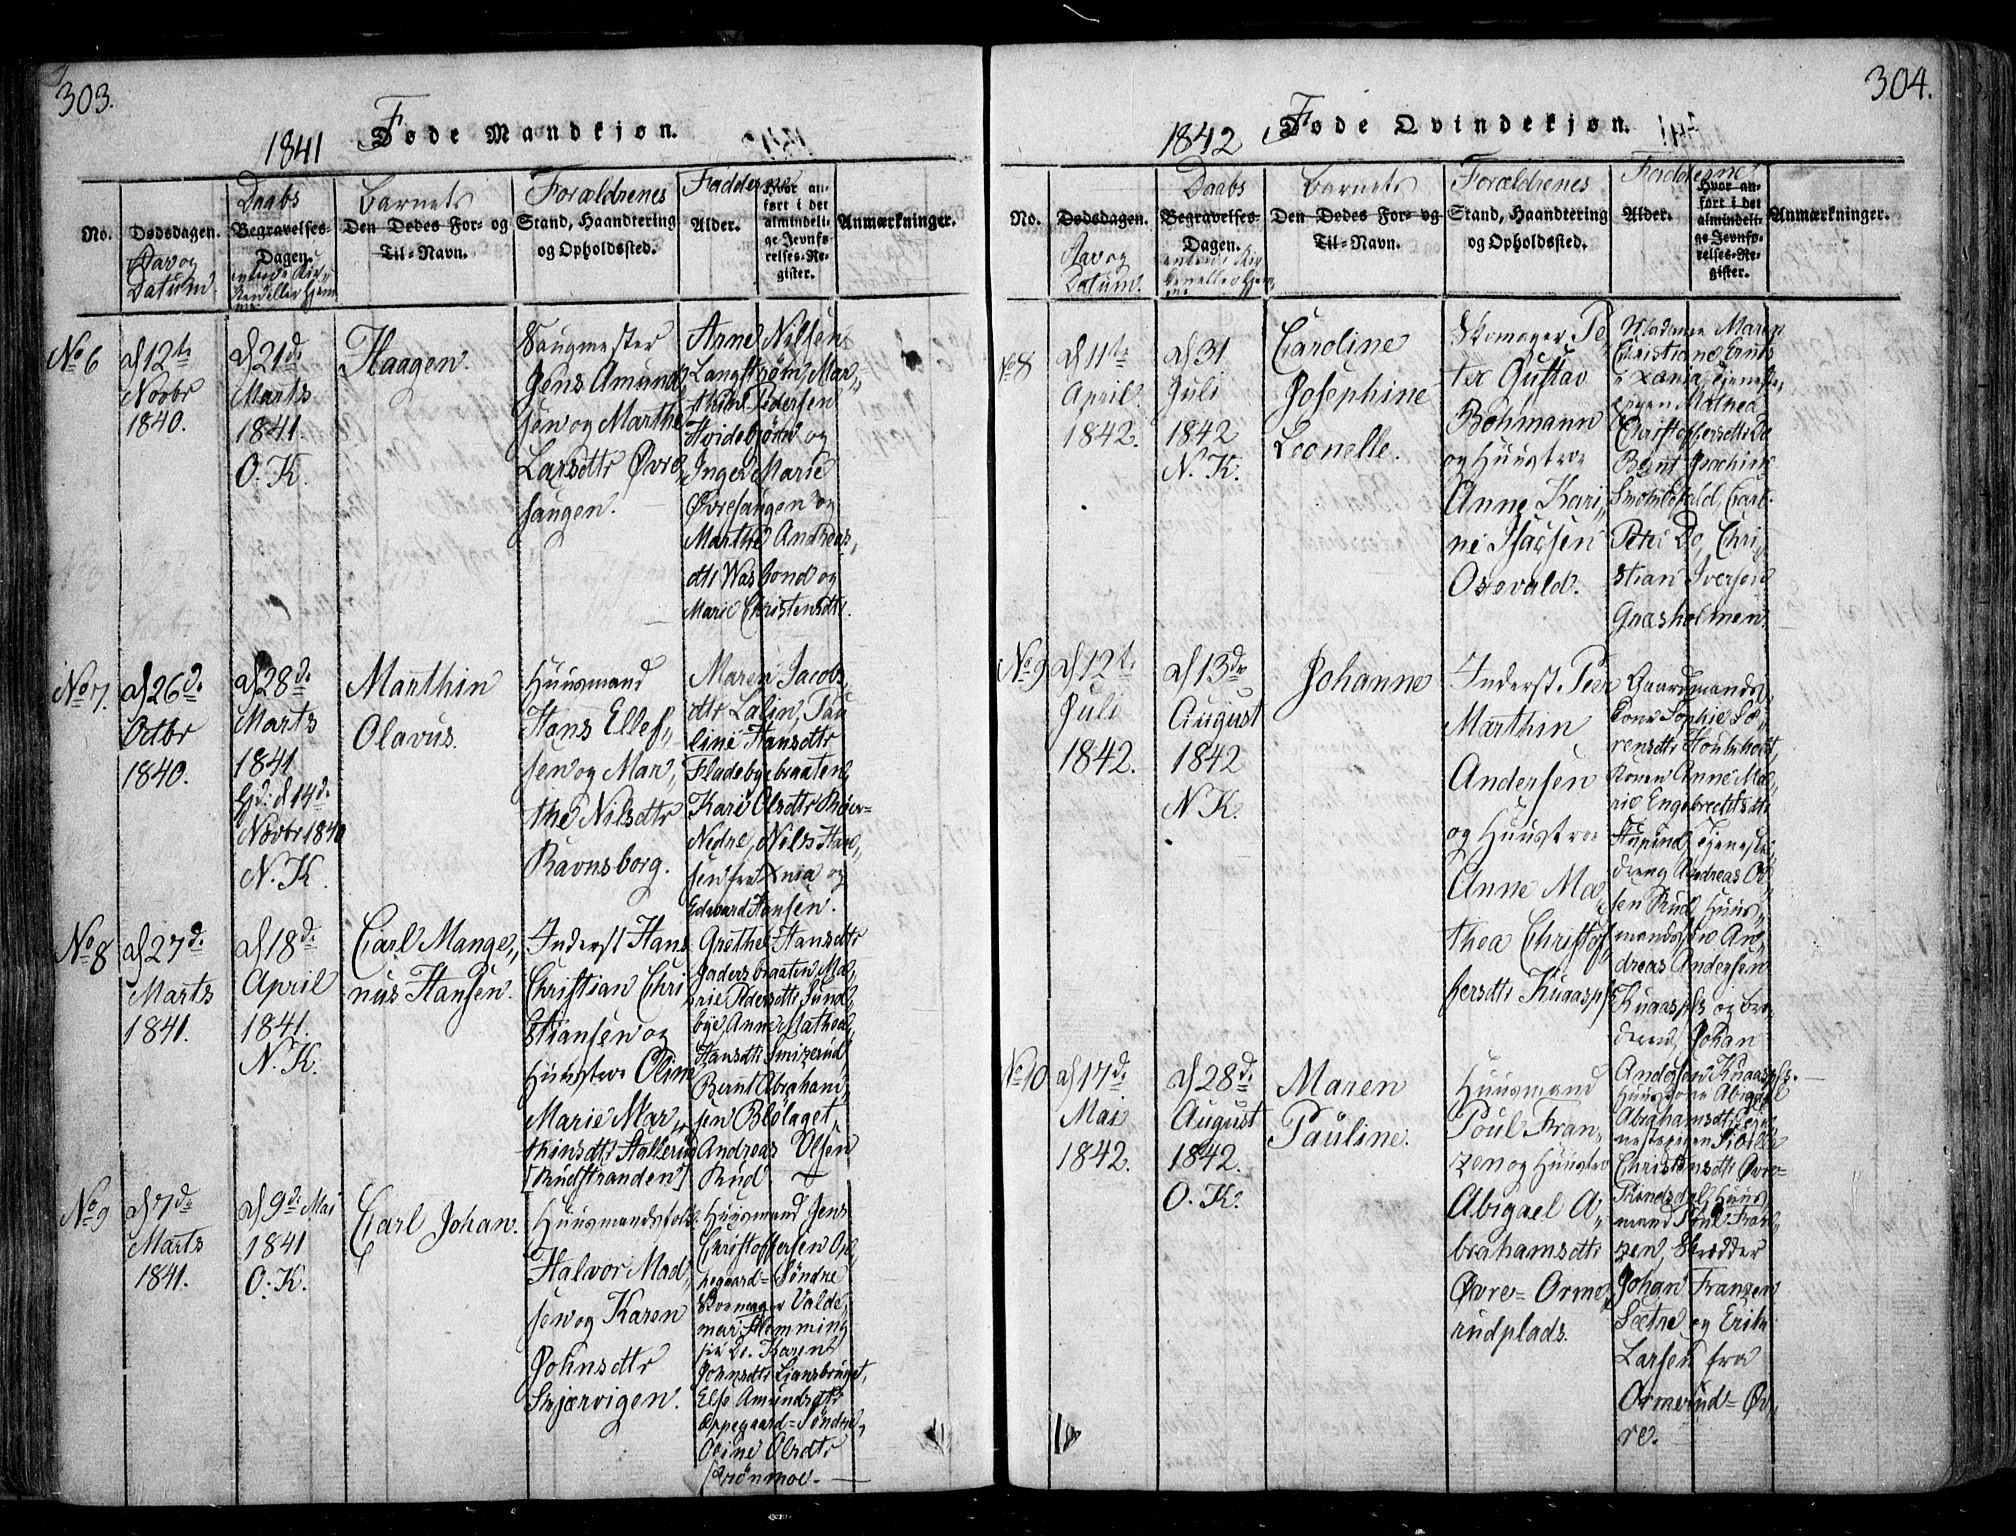 303.
1841 Føde Mandkjøn.
No.
Dødsdagen.
Dag og
Datum
Daabs
Begravelses-
Dagen.
Barnets
Den Dødes For- og
Til-Navn.
Forældrenes
Stand, Haandtering
og Opholdssted.
Fadderne
Alder.
Hvor an-
ført i det
almindeli-
ge Jevnfø-
relses-Re-
gister.
Anmærkninger.
No 6
d 12te
Novbr
1840.
d 21de
Marts
1841.
O. K.
Haagen.
Saugmester
Jens Amund„
sen og Marthe
Larsdtr Øvre
saugen.
Arne Nilsen
Langstrøm, Mar„
thine Pedersen
Hvidebjørn og
Inger Marie
Øvresaugen og
Marthe Andreas„
dtr Wasbond og
Marie Christensdtr.
No 7.
d 26d.
Octbr
1840.
d 28d.
Marts
1841
Hjd. d 14d.
Novbr 1840
N. K.
Marthin
Olavus.
Huusmand
Hans Ellef„
sen og Mar„
the Nilsdtr
Ravnsborg.
Maren Jacobs
dtr Lalin, Pau
line Hansdtr
Fladebyebraaten,
Kari Olsdtr Røer=
Nedre, Nils Han
sen fra Xnia og
Edward Hansen.
No 8
d 27d.
Marts
1841.
d 18d.
April
1841.
N. K.
Carl Mange„
nus Hansen.
Inderst Hans
Christian Chri
stiansen og
Huustroe Oline
Marie Mar„
thinsdtr Hallerud
[Rudstranden]
Grethe Hansdtr
Gadersbraaten, Ma„
rie Pedersdtr Sund
bye, Anne Mathea
Hansdtr Smizerud
Bernt Abraham„
sen Blølaget,
Andreas Olsen
Rud.
No 9
d 7de
Marts
1841.
d 9d. Mai
1841
O. K.
Carl Johan.
Huusmandsfolk
Halvor Mad„
sen og Karen
Johnsdtr
Skjærvigen.
Huusmand Jens
Christoffersen Op
pegaard=Søndre
Skomager Valde„
mar Flemming
Do. Karen
Johnsdtr Ljansbruget,
Else Amundsdtr
Oppegaard=Søndre,
Oline Olsdtr
Grønmoe.
304.
1842 Føde Qvindekjøn.
No.
Dødsdagen.
Dag og
Datum.
Daabs
Begravelses-
Dagen.
Barnets
Den Dødes For- og
Til-Navn.
Forældrenes
Stand, Haandtering
og Opholdssted.
Fadderne
Alder.
Hvor an-
ført i det
almindeli-
ge Jevnfø-
relses-Re-
gister.
Anmærkninger.
No 8
d 11te
April.
1842.
d 31
Juli
1842
N. K.
Caroline
Josephine
Leonelle.
Skomager Pe
ter Gustav
Bohmann
og Huustroe
Anne Kari„
ne Isacsen
Oxevald.
Madame Maren
Christiane
Xania, Tjeneste„
pigen Mathea
Christoffersdtr Do
Bernt Joachim
Carl
Petri Do, Chri„
stian Iversen
Graasholmen.
No 9
d 12t.
Juli
1842.
d 13de
August
1842
N. K.
Johanne
Inderst Peer
Marthin
Andersen
og Huustroe
Anne Ma„
thea Christof„
fersdtr Kuaaspls
Gaardmands„
kone Sophie So„
rensdtr
Konen Anne Ma„
rie Engebrechtsdtr
Tjeneste„
dreng Andreas Ol„
sen Rud, Huus„
mand An„
dreas Andersen
Kuaaspls og Bro„
deren, Johan
Andersen Kuaaspls.
No 10
d 17d.
Mai
1842.
d 28d.
August
1842.
O. K.
Maren
Pauline.
Huusmand
Poul Fran„
zen og Huustroe
Abigael A„
brahamsdtr
Øvre=Orme„
rudplads.
Huustroe Abigael
Abrahamsdtr, Tje„
nestepigen
Christensdtr Øvre=
Rindsdal, Huus„
mand Poul Fran„
zen, Skrædder
Johan Franzen
Sætre og Erik
Larsen fra
Ormerud=Øv„
re.